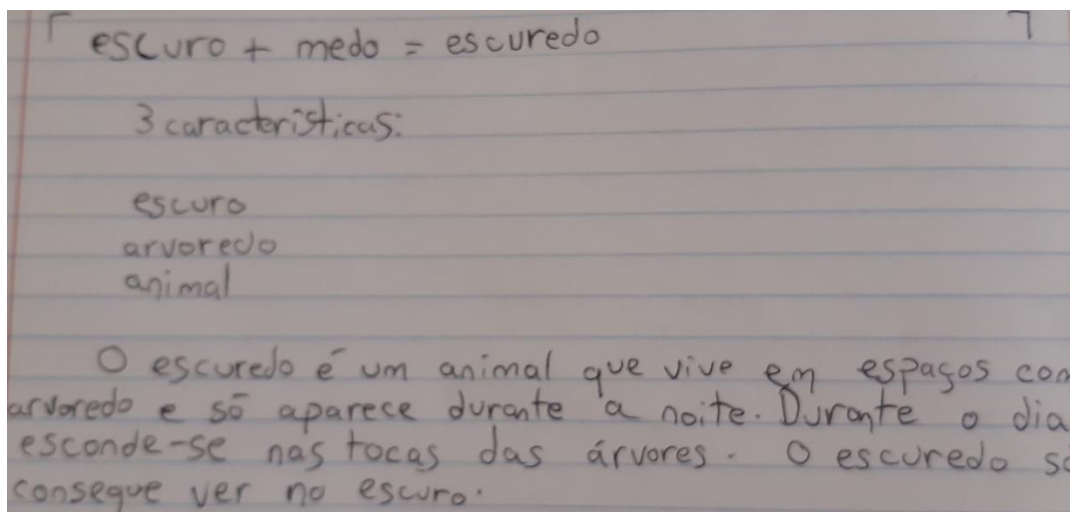 escuro + medo = escuredo
3 características:
escuro
arvoredo
animal
O escuredo é um animal que vive em espaços com
arvoredo e só aparece durante a noite. Durante o dia
esconde-se nas tocas das árvores. O escuredo só
consegue ver no escuro.